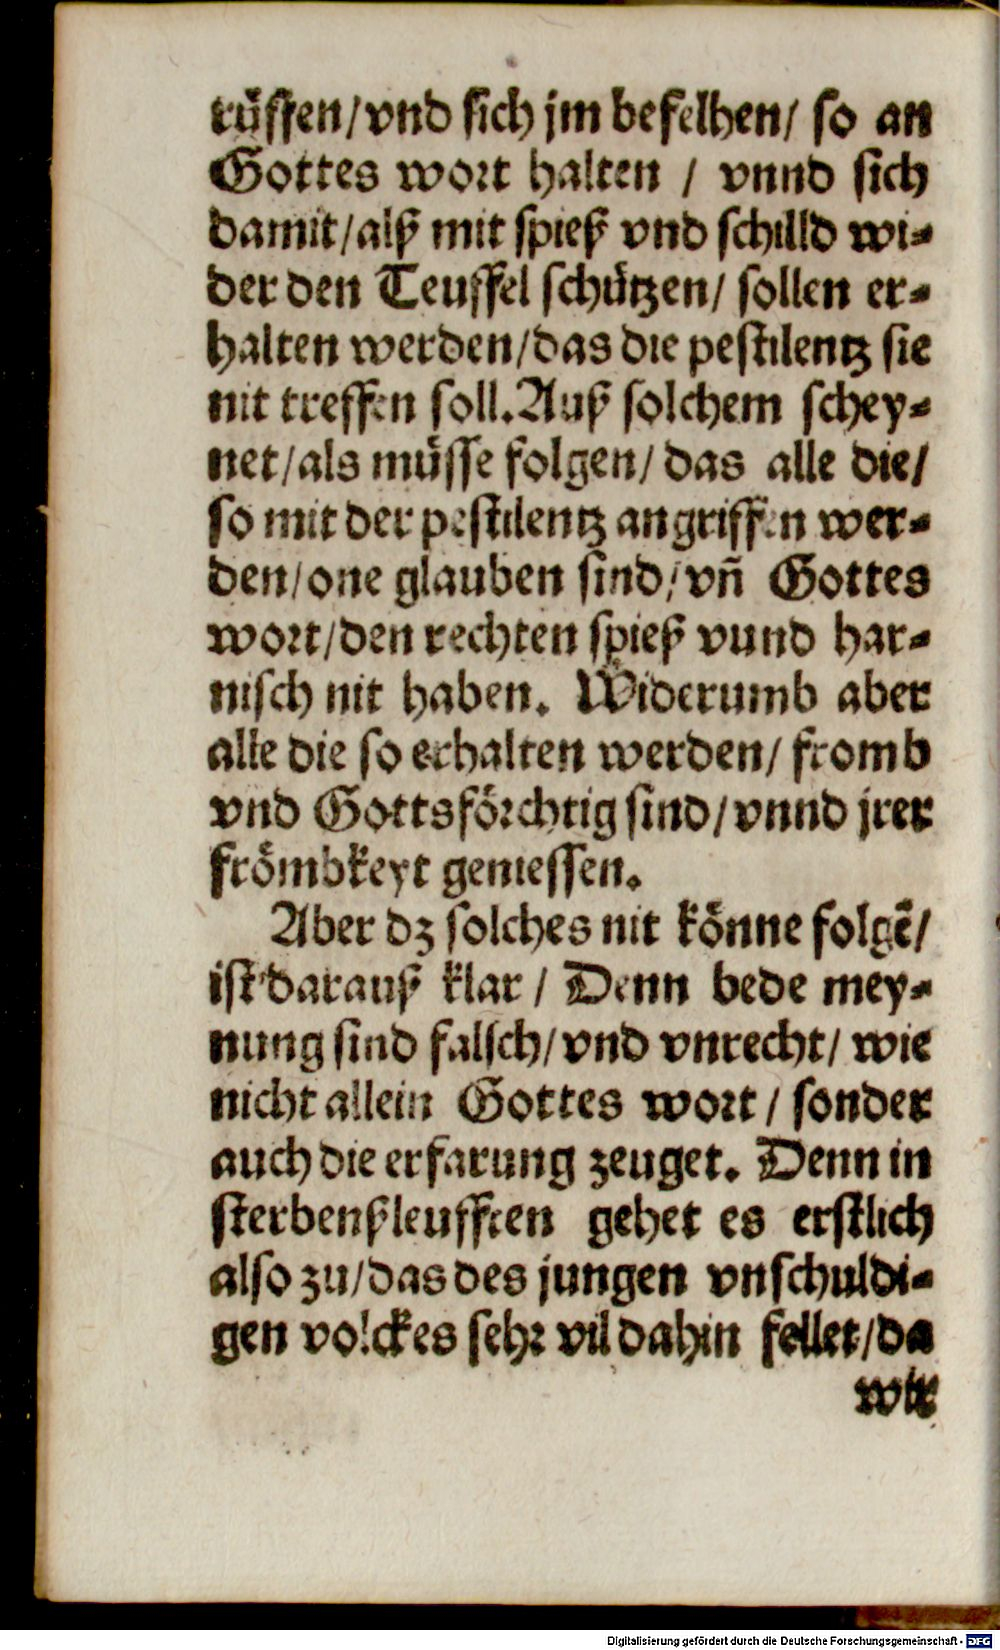 rüffen/vnd sich jm befelhen/ so an
Gottes wort halten / vnnd sich
damit/alß mit spieß vnd schilld wi-
der den Teuffel schützen/ sollen er-
halten werden/das die pestilentz sie
nit treffen soll. Auß solchem schey-
net/als müsse folgen/ das alle die/
so mit der pestilentz angriffen wer-
den/one glauben sind/ vñ Gottes
wort/den rechten spieß vund har-
nisch nit haben. Widerumb aber
alle die so erhalten werden/ fromb
vnd Gottsförchtig sind/vnnd jrer
frömbkeyt geniessen.
Aber dz solches nit könne folgẽ/
ist darauß klar / Denn bede mey-
nung sind falsch/vnd vnrecht/ wie
nicht allein Gottes wort / sonder
auch die erfarung zeuget. Denn in
sterbenßleufften gehet es erstlich
also zu/das des jungen vnschuldi-
gen volckes sehr vil dahin fellet/da
wir
Digitalisierung gefördert durch die Deutsche Forschungsgemeinschaft - DFG